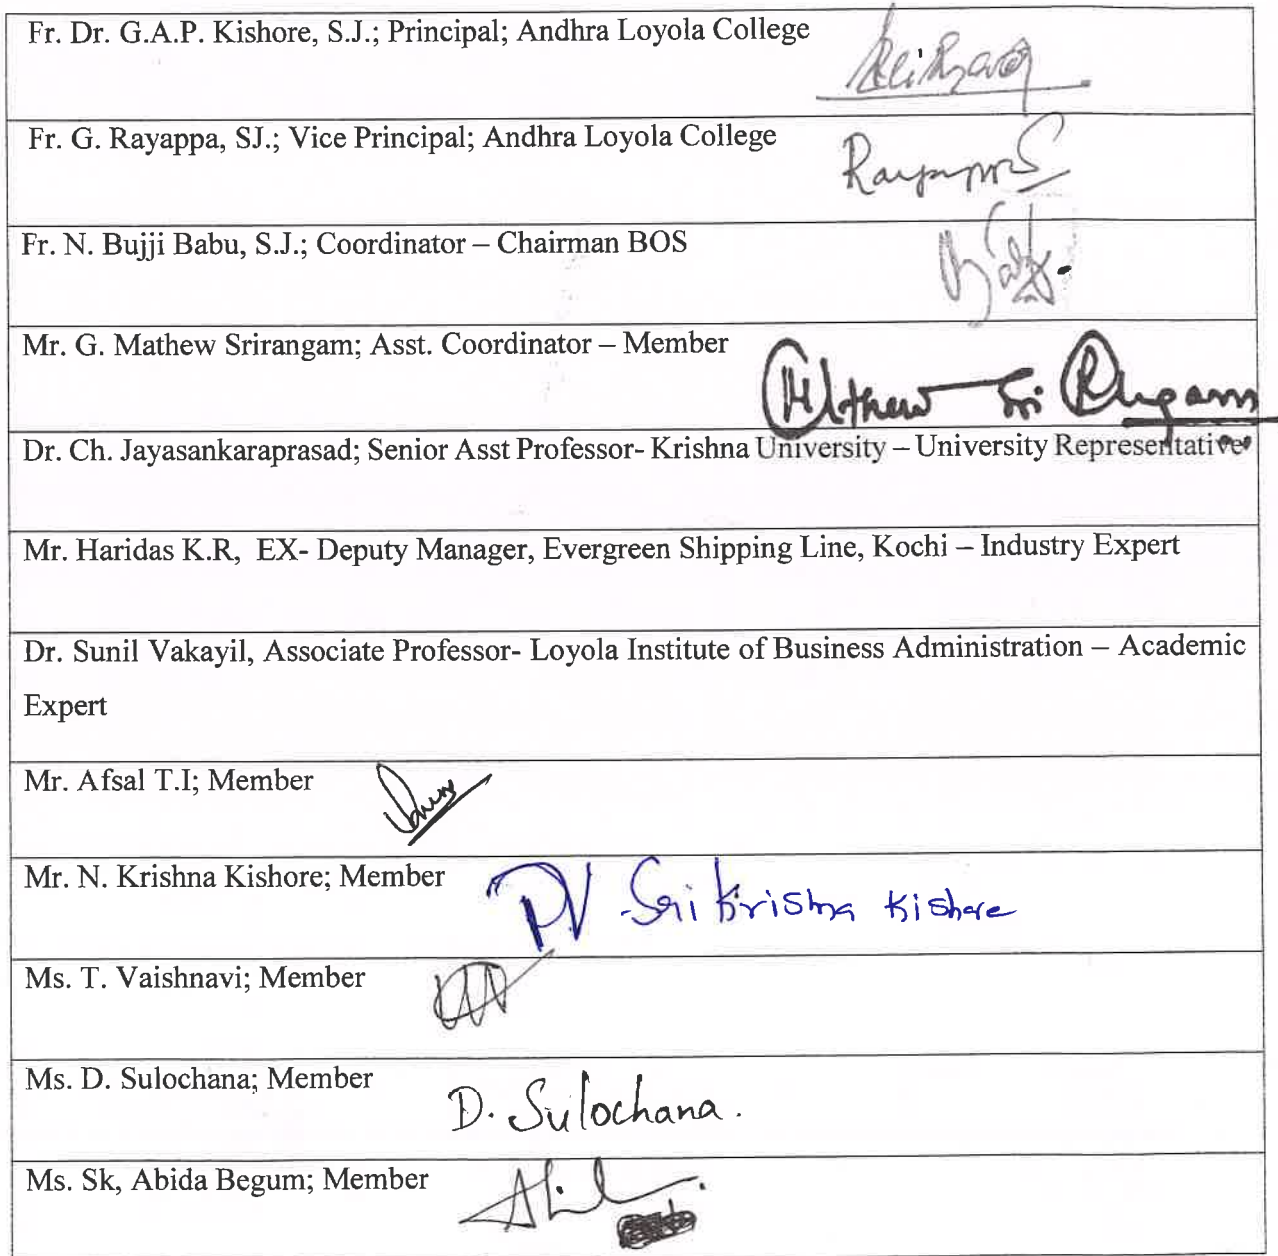 Fr. Dr. G.A.P. Kishore, S.J.; Principal; Andhra Loyola College
Fr. G. Rayappa, SJ.; Vice Principal; Andhra Loyola College
Fr. N. Bujji Babu, S.J.; Coordinator – Chairman BOS
Mr. G. Mathew Srirangam; Asst. Coordinator – Member
Dr. Ch. Jayasankaraprasad; Senior Asst Professor- Krishna University – University Representative
Mr. Haridas K.R, EX- Deputy Manager, Evergreen Shipping Line, Kochi – Industry Expert
Dr. Sunil Vakayil, Associate Professor- Loyola Institute of Business Administration – Academic
Expert
Mr. Afsal T.I; Member
Mr. N. Krishna Kishore; Member
PV Sri Krishna Kishore
Ms. T. Vaishnavi; Member
Ms. D. Sulochana; Member
D. Sulochana.
Ms. Sk, Abida Begum; Member